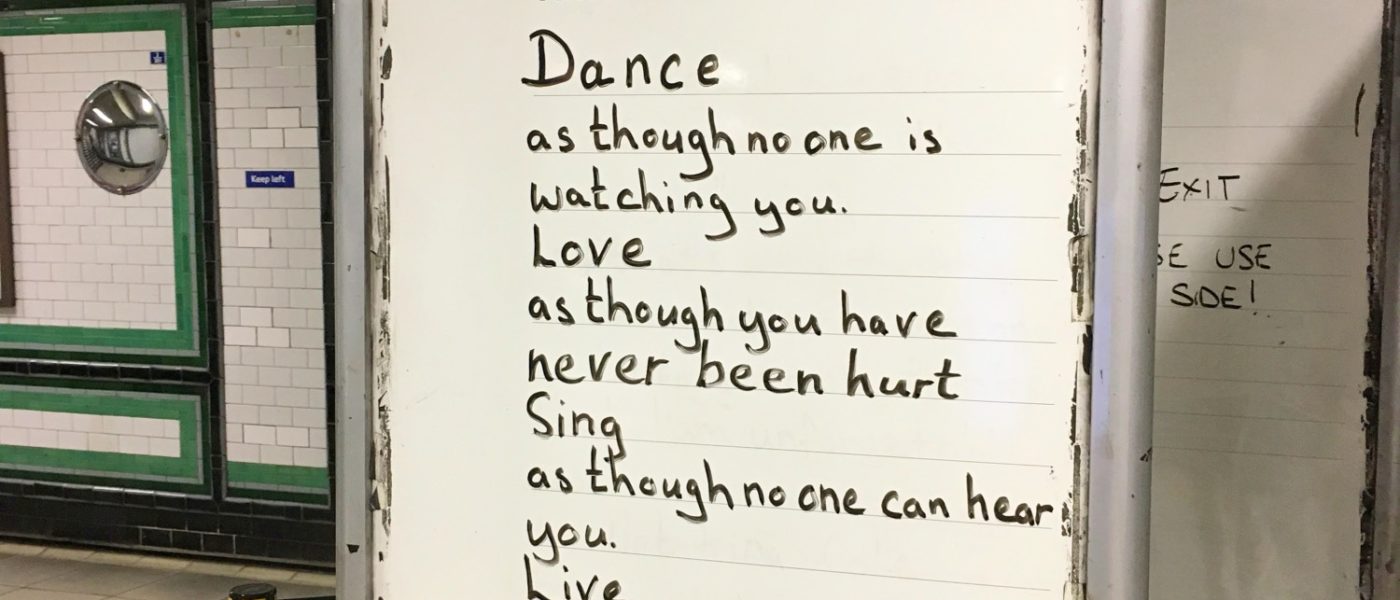 Dance
as though no one is
watching you.
Love
as though you have
never been hurt
Sing
as though no one can hear
you.
Live
Keep left
EXIT
USE
SIDE!